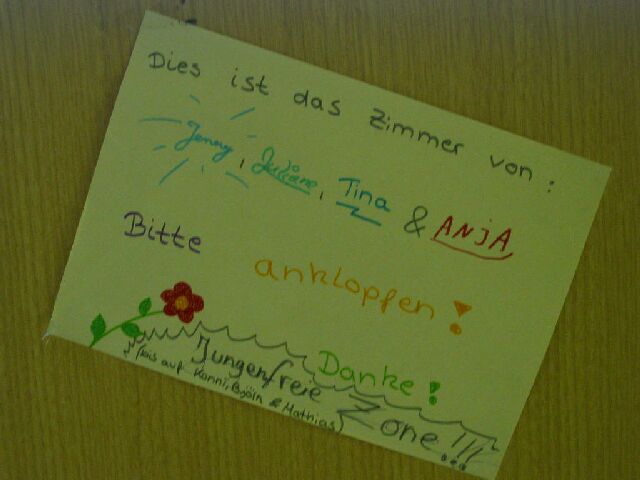 Dies ist das Zimmer von:
Jenny, Juliane, Tina & ANJA
Bitte
anklopfen!
Danke!
Jungenfreie Zone!!!
(bis auf Konni, Björn & Mathias)